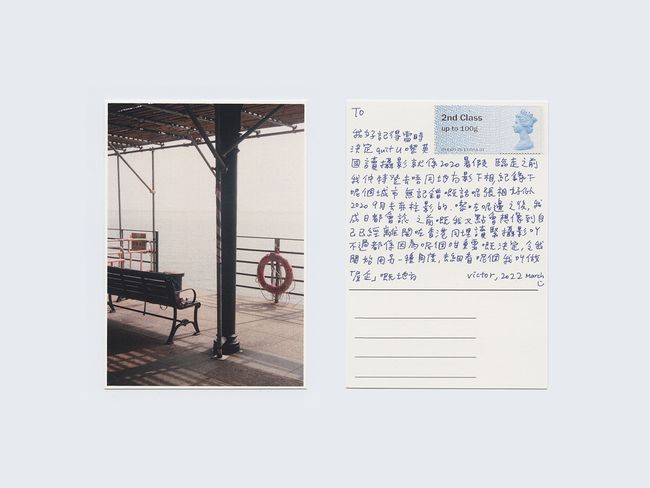 To
2nd Class
up to 100g
我好記得當時
決定quit U嚟英
國讀攝影就係2020暑假 臨走之前
我仲特登去唔同地方影下相,紀錄下
呢個城市 無記錯嘅話呢張相好似
2020 9月去 影的. 嚟左呢邊之後,我
成日都會諗 之前嘅我又點會想像到自
己已經離開咗香港同埋讀緊攝影吖
不過都係因為呢個咁重要嘅決定,令我
開始用另一種角度,去細看呢個我叫做
「屋企」嘅地方 Victor, 2022 March